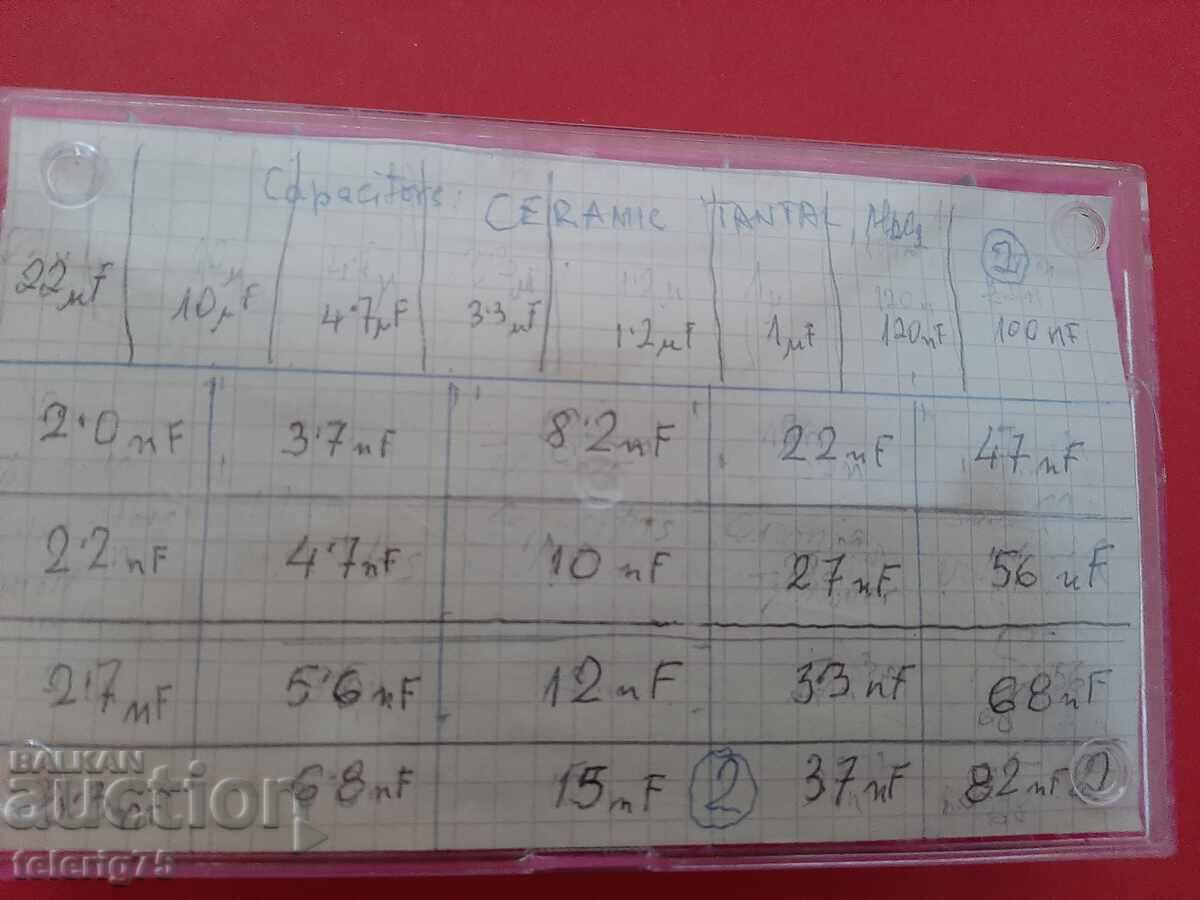 Capacitors: CERAMIC TANTAL,
2
22μF 10μF 4.7μF 3.3μF 1.2μF 1μF 120nF 100nF
2.0nF 3.7nF 8.2nF 22nF 47nF
2.2nF 4.7nF 10nF 27nF 56nF
2.7nF 5.6nF 12nF 33nF 68nF
6.8nF 15nF 2 37nF 82nF 2
BALKAN
auction
telerig75